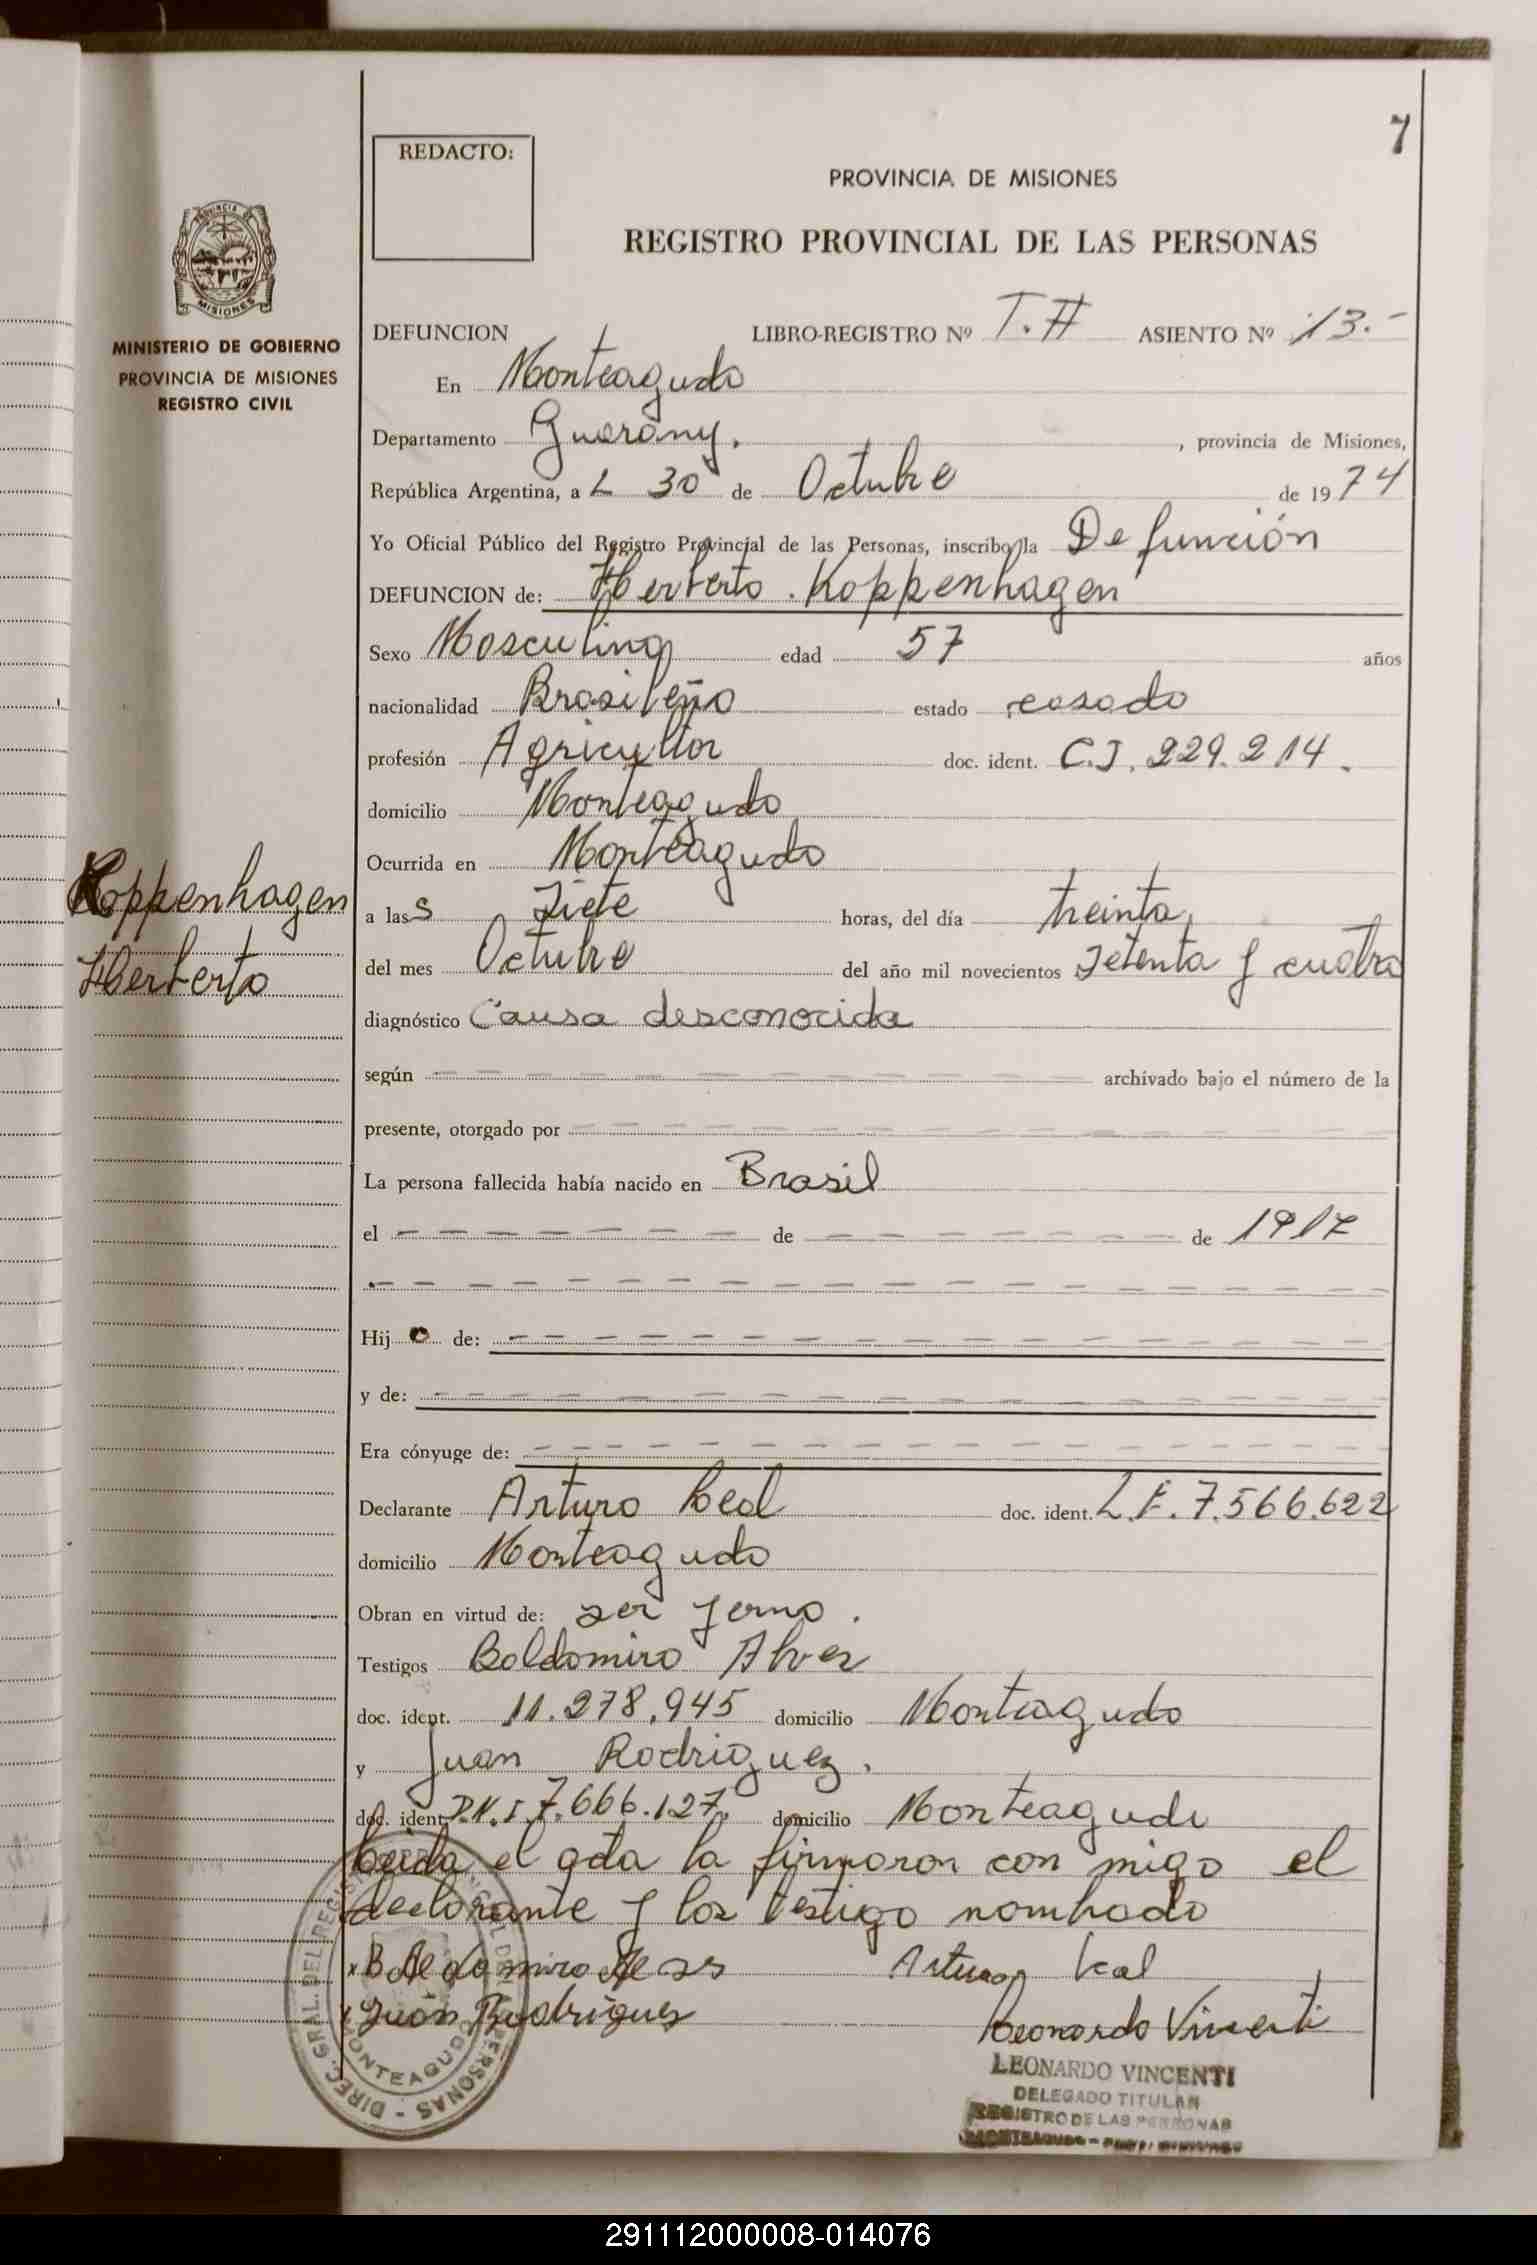 7
REDACTO:
PROVINCIA DE MISIONES
REGISTRO PROVINCIAL DE LAS PERSONAS
PROVINCIA DE
MISIONES
MINISTERIO DE GOBIERNO
PROVINCIA DE MISIONES
REGISTRO CIVIL
DEFUNCION LIBRO-REGISTRO Nº T.# ASIENTO Nº 13.-
En Monteagudo
Departamento Guarany. , provincia de Misiones,
República Argentina, a L 30 de Octubre de 1974
Yo Oficial Público del Registro Provincial de las Personas, inscribo la Defunción
DEFUNCION de: Herberto . Koppenhagen
Sexo Masculino edad 57 años
nacionalidad Brasileño estado casado
profesión Agricultor doc. ident. C.I. 229.214.
domicilio Monteagudo
Ocurrida en Monteagudo
Koppenhagen
Herberto
a las S Siete horas, del día treinta,
del mes Octubre del año mil novecientos Setenta y cuatro
diagnóstico Causa desconocida
según — — — — — — — — archivado bajo el número de la
presente, otorgado por — — — — — — — —
La persona fallecida había nacido en Brasil
el — — — — — — de — — — — — — de 1917
Hij o de: — — — — — — — —
y de: — — — — — — — —
Era cónyuge de: — — — — — — — —
Declarante Arturo Leal doc. ident. L.E. 7.566.622
domicilio Monteagudo
Obran en virtud de: ser yerno.
Testigos Boldomiro Alvez
doc. ident. 11.278.945 domicilio Monteagudo
y Juan Rodriguez.
doc. ident. D.N.I 7.666.127 domicilio Monteagudo
Leida el acta la firmaron con migo el
declarante y los testigo nombrado
Arturo Leal
x Juan Rodrigues
Leonardo Vincenti
LEONARDO VINCENTI
DELEGADO TITULAR
REGISTRO DE LAS PERSONAS
DIREC. GRAL. DEL REGISTRO PERSONAS
MONTEAGUDO
291112000008-014076